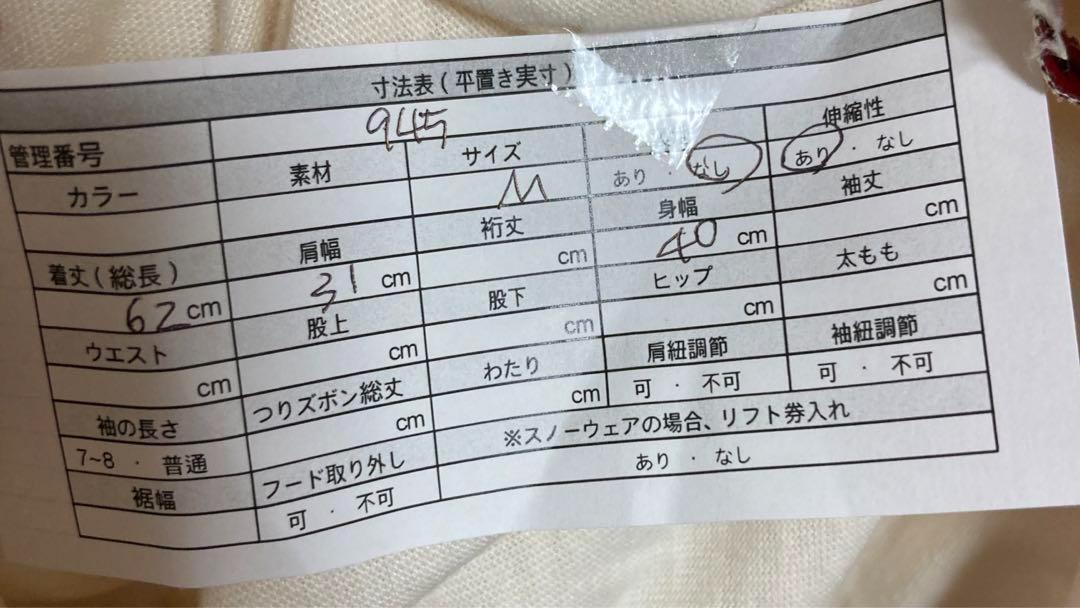 寸法表(平置き実寸)
管理番号 945
カラー 素材 サイズ 伸縮性
M あり・なし あり・なし
着丈(総長) 肩幅 裄丈 身幅 袖丈
62cm 31cm cm 40cm cm
ウエスト 股上 股下 ヒップ 太もも
cm cm cm cm cm
袖の長さ つりズボン総丈 わたり 肩紐調節 袖紐調節
7~8・普通 cm cm 可・不可 可・不可
裾幅 フード取り外し ※スノーウェアの場合、リフト券入れ
可・不可 あり・なし